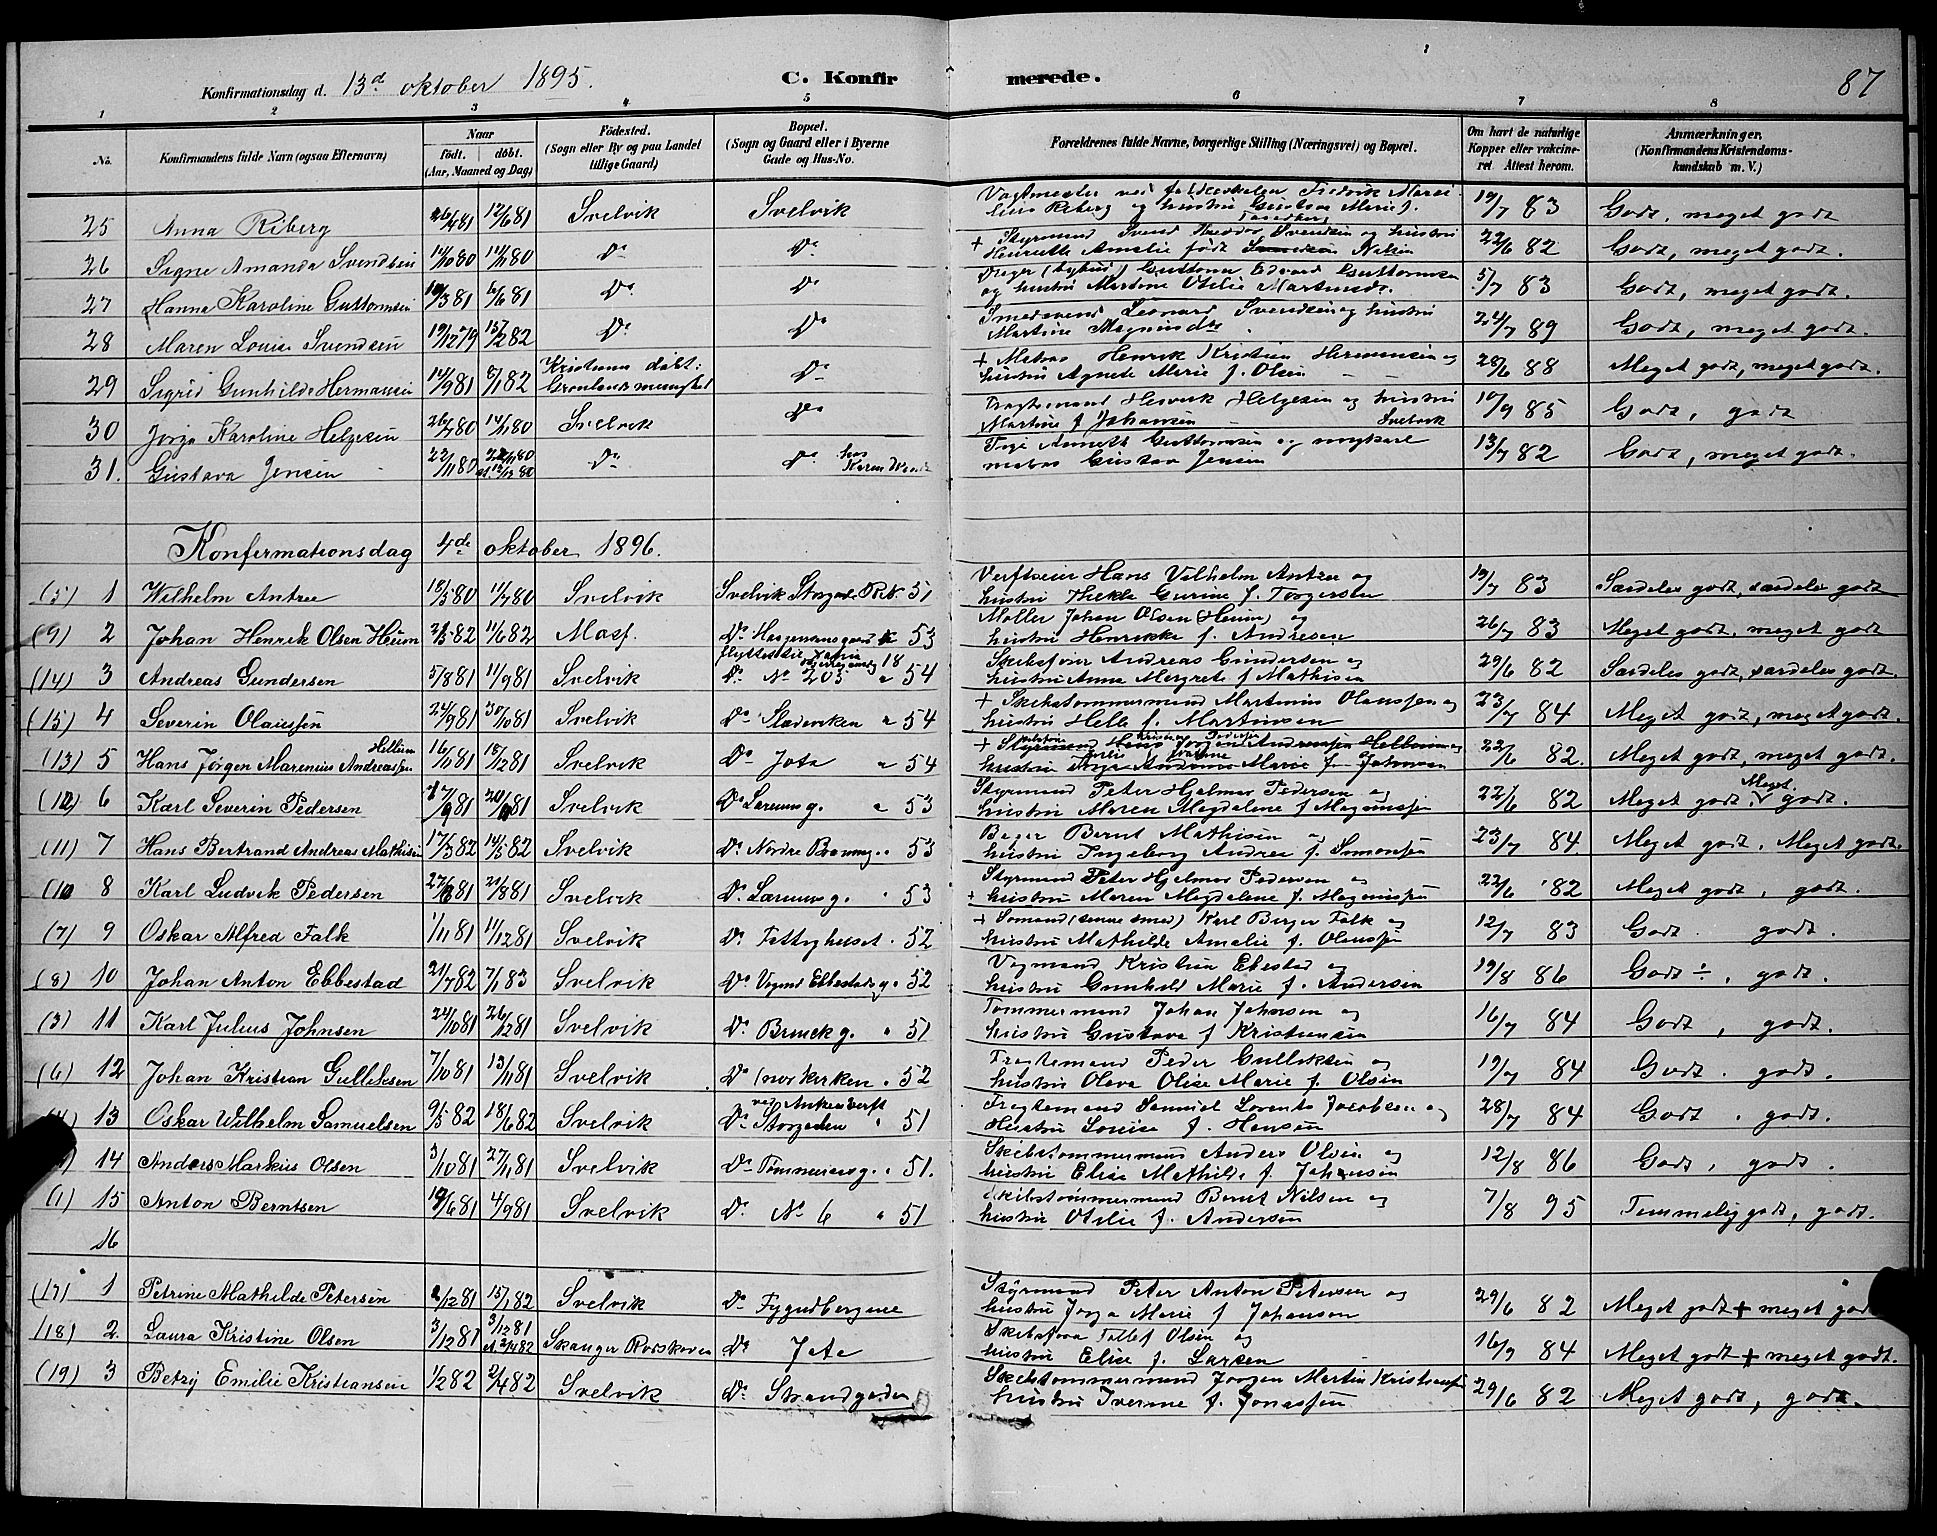 Konfirmationsdag d. 13d oktober 1895. C. Konfirmerede. 87
1 2 3 4 5 6 7 8
No. Konfirmandens fulde Navn (ogsaa Efternavn) Naar født. døbt. (Aar, Maaned og Dag) Fødested. (Sogn eller By og paa Landet tillige Gaard) Bopæl. (Sogn og Gaard eller i Byerne Gade og Hus-No. Forældrenes fulde Navne, borgerlige Stilling (Næringsvei) og Bopæl. Om havt de naturlige Kopper eller vakcineret. Attest herom. Anmærkninger. (Konfirmandens Kristendomskundskab m. V.)
25 Anna Riberg 12/6 81 Svelvik Svelvik Fredrik Riberg og hustru Marie f. 19/7 83 Godt, meget godt
26 Signe Amanda Svendsen 14/10 80 14/11 80 Do Do + Styrmand Svend Svendsen og hustru Henriette Amalie født Nilsen 22/6 82 Godt, meget godt.
27 Hanna Karoline Guttormsen 6/6 81 Do Do Guttorm Edvard Guttormsen og hustru Martine Otilie 5/7 83 Godt, meget godt.
28 Maren Louise Svendsen 19/12 79 15/2 82 Do Do Smedsvend Leonard Svendsen og hustru Martine 24/7 89 Godt, meget godt.
29 Sigrid Gunhilde Hermansen 14/9 81 8/1 82 Kristiania døbt: Grønlands menighed Do + Matros Henrik Kristian Hermansen og hustru Agnete Marie f. Olsen 28/6 88 Meget godt, meget godt.
30 Jørga Karoline Helgesen 26/7 80 14/11 80 Svelvik Do Fragtemand Henrik Helgesen og hustru Martine f Johansen Svelvik 10/9 85 Godt, godt
31. Gustava Jensen 22/11 80 Do Do hos Karen Anneth Guttormsen og ungkarl matros Gustav Jensen 13/7 82 Godt, meget godt.
Konfermationsdag 4de oktober 1896.
(5) 1 Wilhelm Antree 18/5 80 11/7 80 Svelvik Svelvik Storgade 51 Verftseier Hans Vilhelm Antree og hustru Thekle Gurine f. Torgersen 19/7 83 Særdeles godt, særdeles godt
(9) 2 Johan Henrik Olsen Heum 11/6 82 Masf. Do 53 Møller Johan Olsen (Heum) og hustru Henrikke f. Andresen 26/7 83 Meget godt, meget godt
(14) 3 Andreas Gundersen 5/8 81 11/9 81 Svelvik Do No 205 54 Skibsfører Andreas Gundersen og hustru Anna Margrete f Mathisen 29/6 82 Særdeles godt, særdeles godt.
(15) 4 Severin Olaussen 24/9 81 30/10 81 Svelvik Do Sladeviken " 54 + Skibstømmermand Martinius Olaussen og hustru Helle f. Martinsen 23/7 84 Meget godt, meget godt.
(13) 5 Hans Jørgen Marenius Andreassen Hellum 18/12 81 Svelvik Do Jota " 54 + Styrmand Hans Jørgen Andreassen Hellum og hustru Marie f. Johnsen 22/6 82. Meget godt, meget godt.
(12) 6 Karl Severin Pedersen Svelvik Do Larumg. " 53 Styrmand Peter Hjelmar Pedersen og hustru Maren Magdalene f Magnussen 22/6 82 Meget godt. Meget godt.
(11) 7 Hans Bertrand Andreas Mathisen 17/3 82 14/5 82 Svelvik Do Nordre Brenng. " 53 Bager Bernt Mathisen og hustru Ingeborg Andrea f. Simonsen 23/7 84 Meget godt. Meget godt.
(10 8 Karl Ludvik Pedersen 21/8 81 Svelvik Do Larumsg. " 53 Styrmand Peter Hjelmer Pedersen og + hustru Maren Magdalene f. Magnussen 22/6 82 Meget godt, godt.
(7) 9 Oskar Alfred Falk 1/11 81 11/12 81 Svelvik Do Fattighuset . 52 + Sømand (senere smed) Karl Berger Falk og hustru Mathilde Amalie f. Olaussen 12/7 83 Godt. godt.
(8) 10 Johan Anton Ebbestad 21/7 82 7/1 83 Svelvik Do Vognd Ebbestadsg. 52 Vognmand Kristian Ebestad og hustru Gunhild Marie f. Andersen 19/8 86 Godt ÷, godt.
(3) 11 Karl Julius Johnsen 24/10 81 26/12 81 Svelvik Do Brinckg. " 51 Tømmermand Johan Johnsen og hustru Gustava f Kristiansen 16/7 84 Godt, godt.
(6) 12 Johan Kristian Gulliksen 7/10 81 13/11 81 Svelvik Do (nor kirken . 52 Fragtemand Peder Gulliksen og hustru Olava Olise Marie f. Olsen 19/7 84 Godt. godt.
(4) 13 Oskar Wilhelm Samuelsen 9/5 82 18/6 82 Svelvik Do Storgaden ved Ankers verft " 51 Fragtemand Samuel Lorents Jacobsen og Hustru Louise f. Hansen 28/7 84 Godt. godt.
14 Anders Markus Olsen 3/10 81 27/11 81 Svelvik Do Tømmeraasg. . 51. Skibstømmermand Anders Olsen og hustru Elise Mathilde f. Johansen 12/8 86 Godt, godt.
(1) 15 Anton Berntsen 19/6 81 4/9 81 Svelvik Do No 6 " 51 Skibstømmermand Bernt Nilsen og hustru Otilie f. Andersen 7/8 95 Temmelig godt, godt.
16
(17) 1 Petrine Mathilde Petersen 15/1 82 Svelvik Do Fygudbergene Styrmand Peter Anton Petersen og hustru Jørga Marie f Johansen 29/6 82 Meget godt + meget godt
(18) 2 Laura Kristine Olsen 3/12 81 Skanger Rørskoven Do Jota Tollef Olsen og hustru Elise f. Larsen 16/9 84 Meget godt + meget godt.
(19) 3 Betzy Emilie Kristiansen 1/2 82 2/4 82 Svelvik Do Strandgaden Skibstømmermand Jørgen Martin Kristiansen hustru Iverine f. Jonassen 29/6 82 Meget godt, godt.